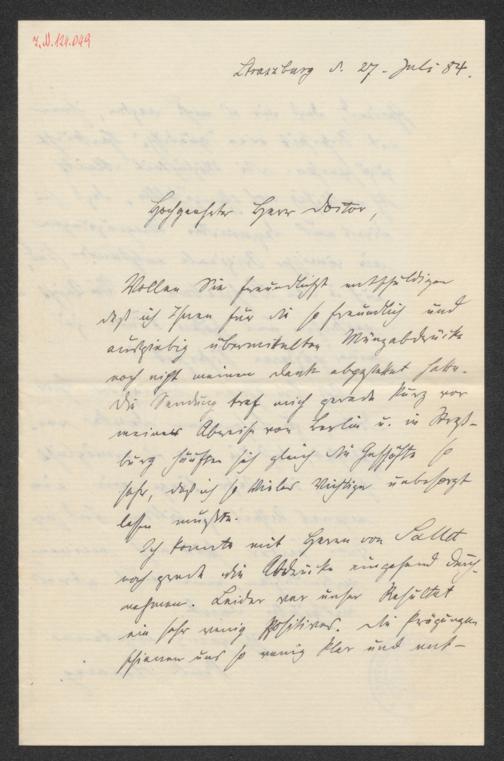 I.N. 124.049
Strassburg d. 27. Juli 84.
Hochgeehrter Herr Doctor,
Wollen Sie freundlichst entschuldigen
daß ich Ihnen für die so freundlich und
ausgiebig übermittelten Münzabdrücke
noch nicht meinen Dank abgestattet habe.
Die Sendung traf mich gerade kurz vor
meiner Abreise von Berlin u. in Strß-
burg häuften sich gleich die Geschäfte so
sehr, daß ich so Vieles Wichtige unbesorgt
lassen mußte.
Ich konnte mit Herrn von Sallet
noch gerade die Abdrücke eingehend durch
nehmen. Leider war unser Resultat
ein sehr wenig Positives. Die Prägungen
schienen uns so wenig klar und ent-